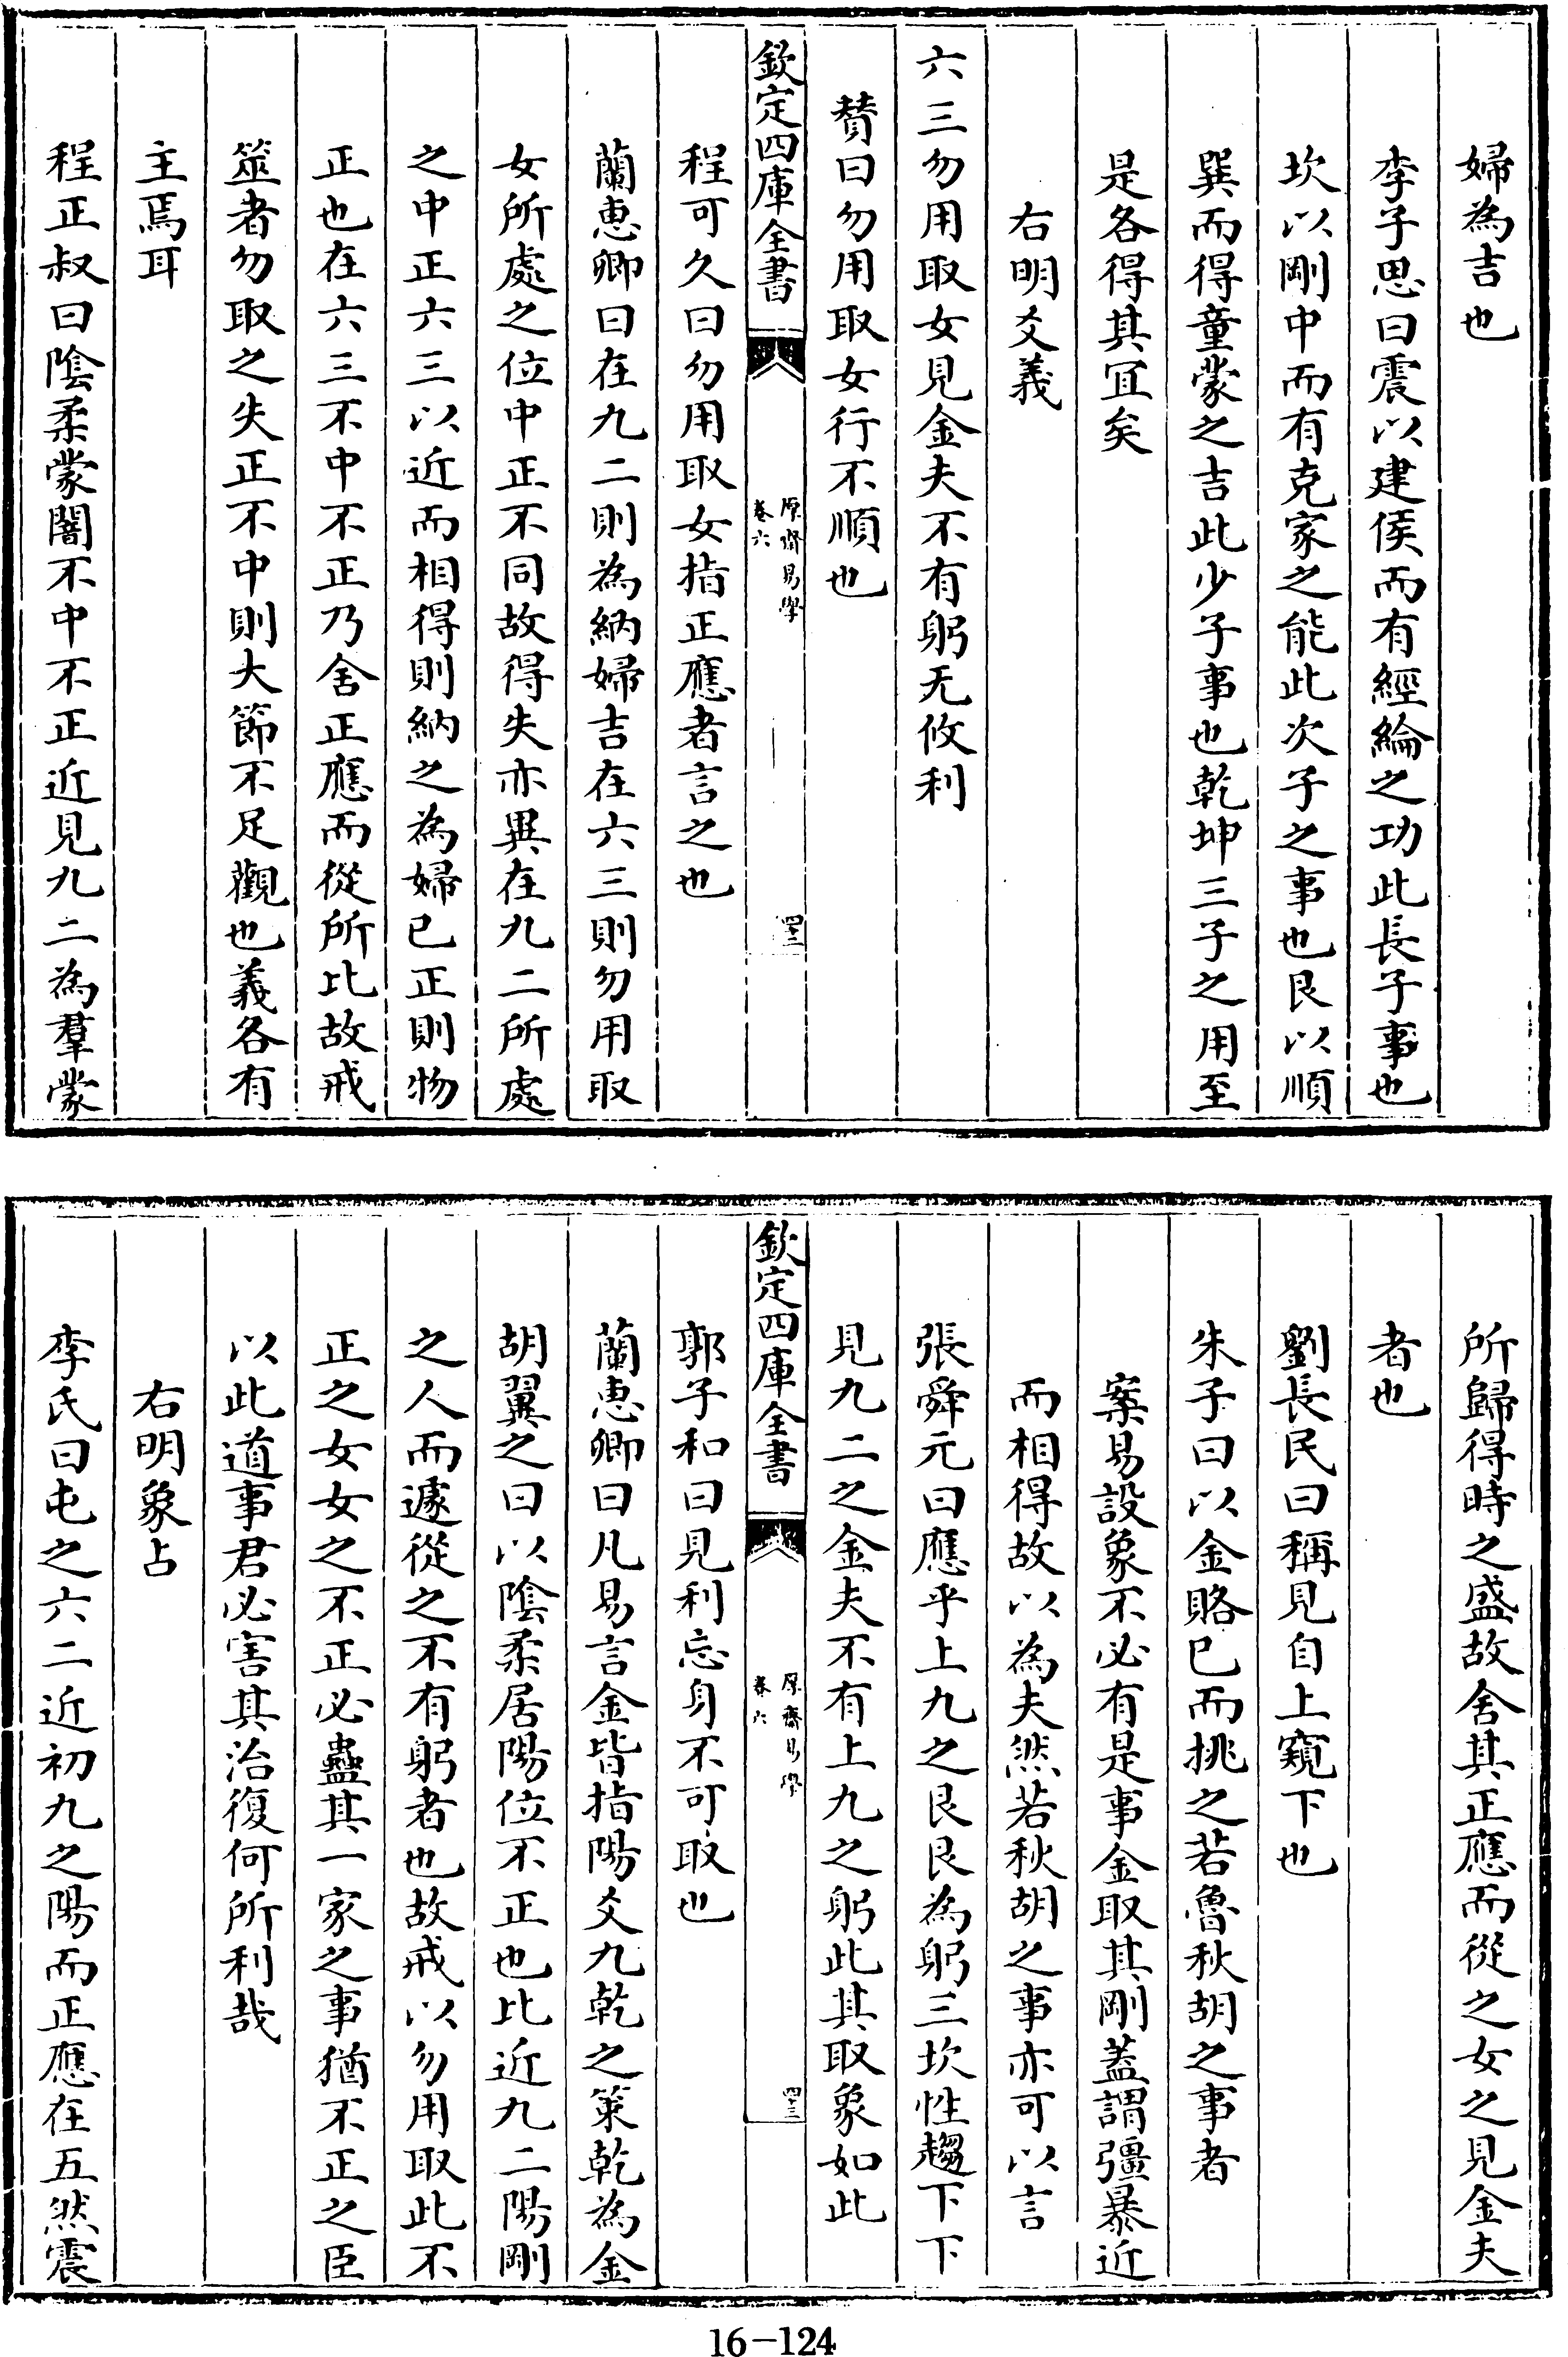 婦為吉也
李子思曰震以建侯而有經綸之功此長子事也
坎以剛中而有克家之能此次子之事也艮以順
巽而得童蒙之吉此少子事也乾坤三子之用至
是各得其宜矣
右明爻義
六三勿用取女見金夫不有躬无攸利
贊曰勿用取女行不順也
欽定四庫全書
厚齋易學
卷六
四十二
程可久曰勿用取女指正應者言之也
蘭惠卿曰在九二則為納婦吉在六三則勿用取
女所處之位中正不同故得失亦異在九二所處
之中正六三以近而相得則納之為婦已正則物
正也在六三不中不正乃舍正應而從所比故戒
筮者勿取之失正不中則大節不足觀也義各有
主焉耳
程正叔曰陰柔蒙闇不中不正近見九二為羣蒙
所歸得時之盛故舍其正應而從之女之見金夫
者也
劉長民曰稱見自上窺下也
朱子曰以金賂已而挑之若魯秋胡之事者
案易設象不必有是事金取其剛蓋謂彊暴近
而相得故以為夫然若秋胡之事亦可以言
張舜元曰應乎上九之艮艮為躬三坎性趨下下
見九二之金夫不有上九之躬此其取象如此
欽定四庫全書
厚齋易學
卷六
四十三
郭子和曰見利忘身不可取也
蘭惠卿曰凡易言金皆指陽爻九乾之策乾為金
胡翼之曰以陰柔居陽位不正也比近九二陽剛
之人而遽從之不有躬者也故戒以勿用取此不
正之女女之不正必蠱其一家之事猶不正之臣
以此道事君必害其治復何所利哉
右明象占
李氏曰屯之六二近初九之陽而正應在五然震
16-124